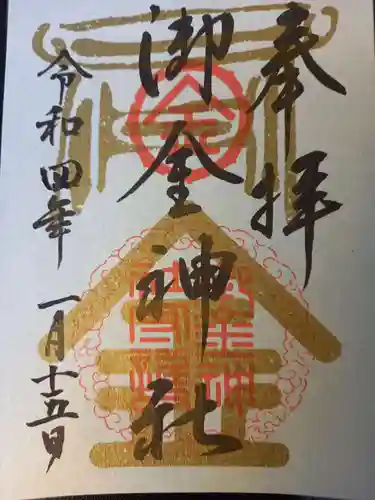 奉拝
御金神社
令和四年 一月十五日